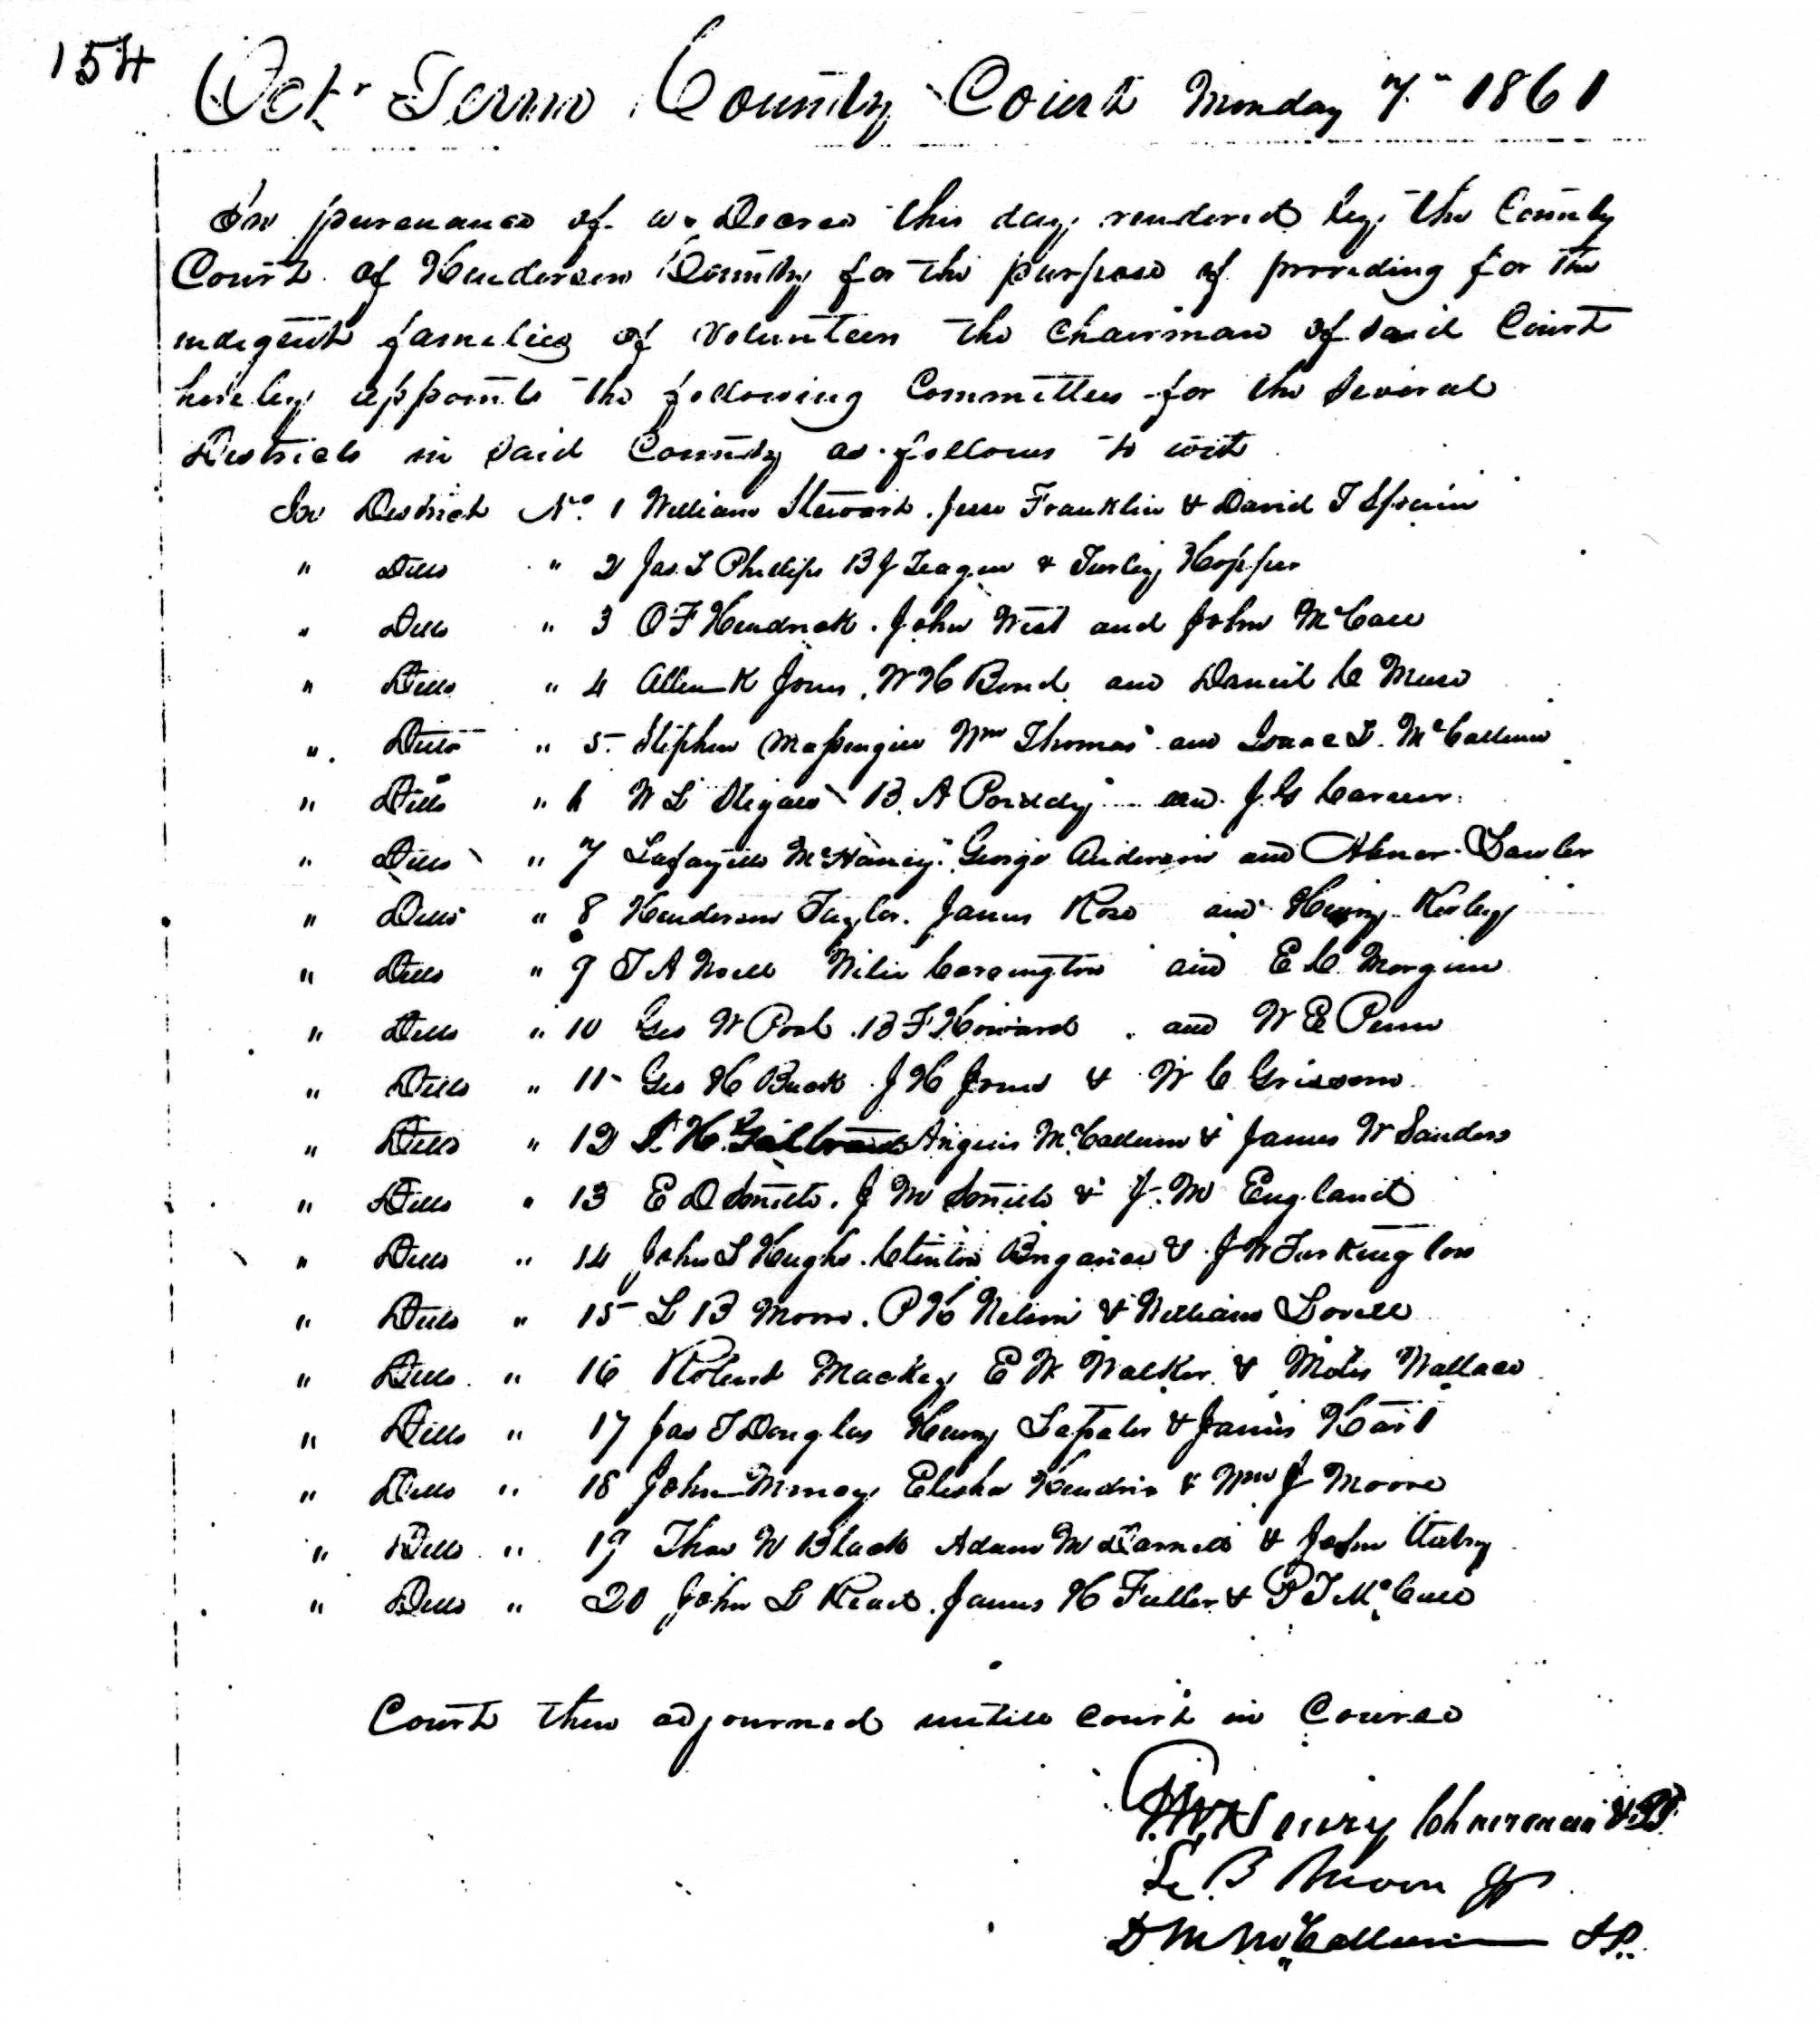 154
Octr Term County Court Monday 7" 1861
In pursuance of a Decree this day rendered by the County
Court of Henderson County for the purpose of providing for the
indigent families of volunteers the Chairman of said Court
hereby appoints the following Committees for the several
Districts in said County as follows to wit
For District No. 1 William Steward. Jesse Franklin & David T Spain
" Ditto " 2 Jas. L Phillips B J Teague & Turley Hopper
" Ditto " 3 O F Hendrick. John West and John McCall
" Ditto " 4 Allen K Jones, W H Bond and Daniel C Muse
" Ditto " 5 Stephen Massengill Wm Thomas and Isaac L. McCallum
" Ditto " 6 W L B A Priddy and J. G
" Ditto " 7 Lafayette McHaney. George Anderson and Abner Lawler
" Ditto " 8 Henderson Taylor. James Ross and Henry Kirby
" Ditto " 9 T A Noell Wilie Carrington and E C Morgan
" Ditto " 10 Geo W Pool. B F Howard. and W E Penn
" Ditto " 11 Geo H Buck J H Jones & W C Grissom
" Ditto " 12 Angus McCallum & James W Sanders
" Ditto " 13 E D Smith. J M Smith & J. M England
" Ditto " 14 John S Hughs. Clinton & J W Turkington
" Ditto " 15 L B Moore. P H Nelson & William Lovell
" Ditto " 16 Robert Mackey E W Walker & Moses Wallace
" Ditto " 17 Jas T Douglas Henry & James Hart
" Ditto " 18 John Elisha Hendrix & Wm J Moore
" Ditto " 19 Thos W Black Adam M & John Autry
" Ditto " 20 John L Read. James H Fuller & P T McCall
Court then adjourned untill Court in Course
Henry Chairman
L B Moore JP
D M McCallum JP.